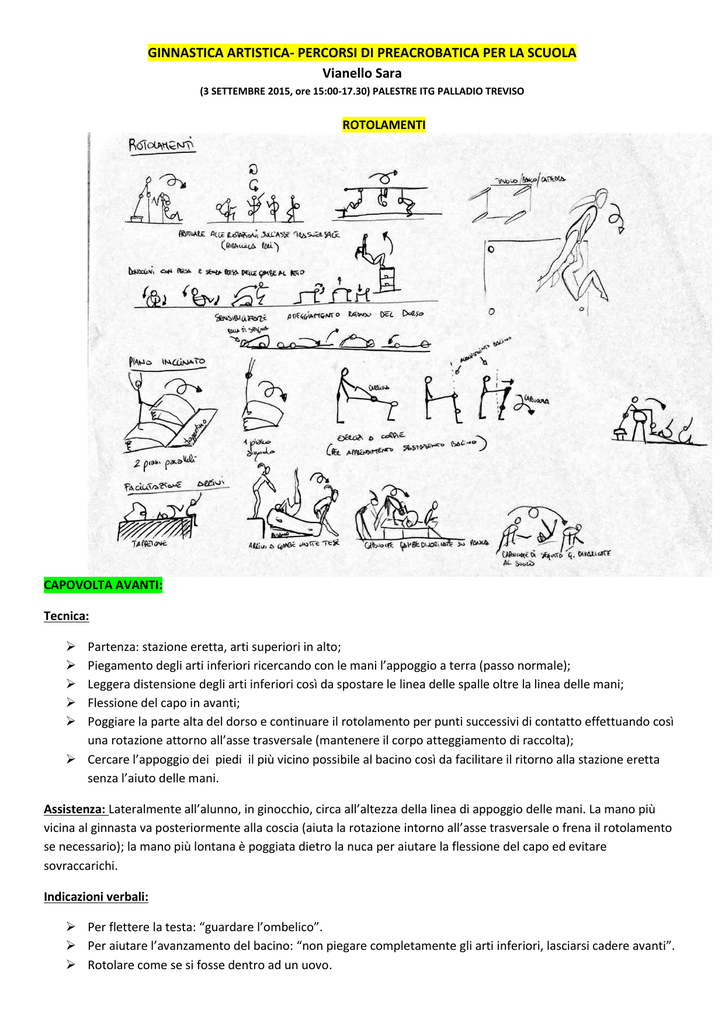 GINNASTICA ARTISTICA- PERCORSI DI PREACROBATICA PER LA SCUOLA
Vianello Sara
(3 SETTEMBRE 2015, ore 15:00-17.30) PALESTRE ITG PALLADIO TREVISO
ROTOLAMENTI
ROTOLAMENTI
ABITUARE ALLE ROTAZIONI SULL'ASSE TRASVERSALE
DONDOLINI CON PRESA E SENZA PRESA DELLE GAMBE AL PETTO
SENSIBILIZZARE ATTEGGIAMENTO ROTONDO DEL DORSO
PIANO INCLINATO
2 piani paralleli
1 piano
ESERCIZI A COPPIE
(PER APPRENDIMENTO BACINO)
FACILITAZIONE ARRIVI
TAPPETONE
ARRIVI A GAMBE UNITE TESE
CAPOVOLTE GAMBE DIVARICATE SU PANCA
CAPOVOLTE DI SEGUITO G. DIVARICATE
AL SUOLO
CAPOVOLTA AVANTI:
Tecnica:
➢ Partenza: stazione eretta, arti superiori in alto;
➢ Piegamento degli arti inferiori ricercando con le mani l'appoggio a terra (passo normale);
➢ Leggera distensione degli arti inferiori così da spostare le linea delle spalle oltre la linea delle mani;
➢ Flessione del capo in avanti;
➢ Poggiare la parte alta del dorso e continuare il rotolamento per punti successivi di contatto effettuando così
una rotazione attorno all'asse trasversale (mantenere il corpo atteggiamento di raccolta);
➢ Cercare l'appoggio dei piedi il più vicino possibile al bacino così da facilitare il ritorno alla stazione eretta
senza l'aiuto delle mani.
Assistenza: Lateralmente all'alunno, in ginocchio, circa all'altezza della linea di appoggio delle mani. La mano più
vicina al ginnasta va posteriormente alla coscia (aiuta la rotazione intorno all'asse trasversale o frena il rotolamento
se necessario); la mano più lontana è poggiata dietro la nuca per aiutare la flessione del capo ed evitare
sovraccarichi.
Indicazioni verbali:
➢ Per flettere la testa: "guardare l'ombelico".
➢ Per aiutare l'avanzamento del bacino: "non piegare completamente gli arti inferiori, lasciarsi cadere avanti".
➢ Rotolare come se si fosse dentro ad un uovo.